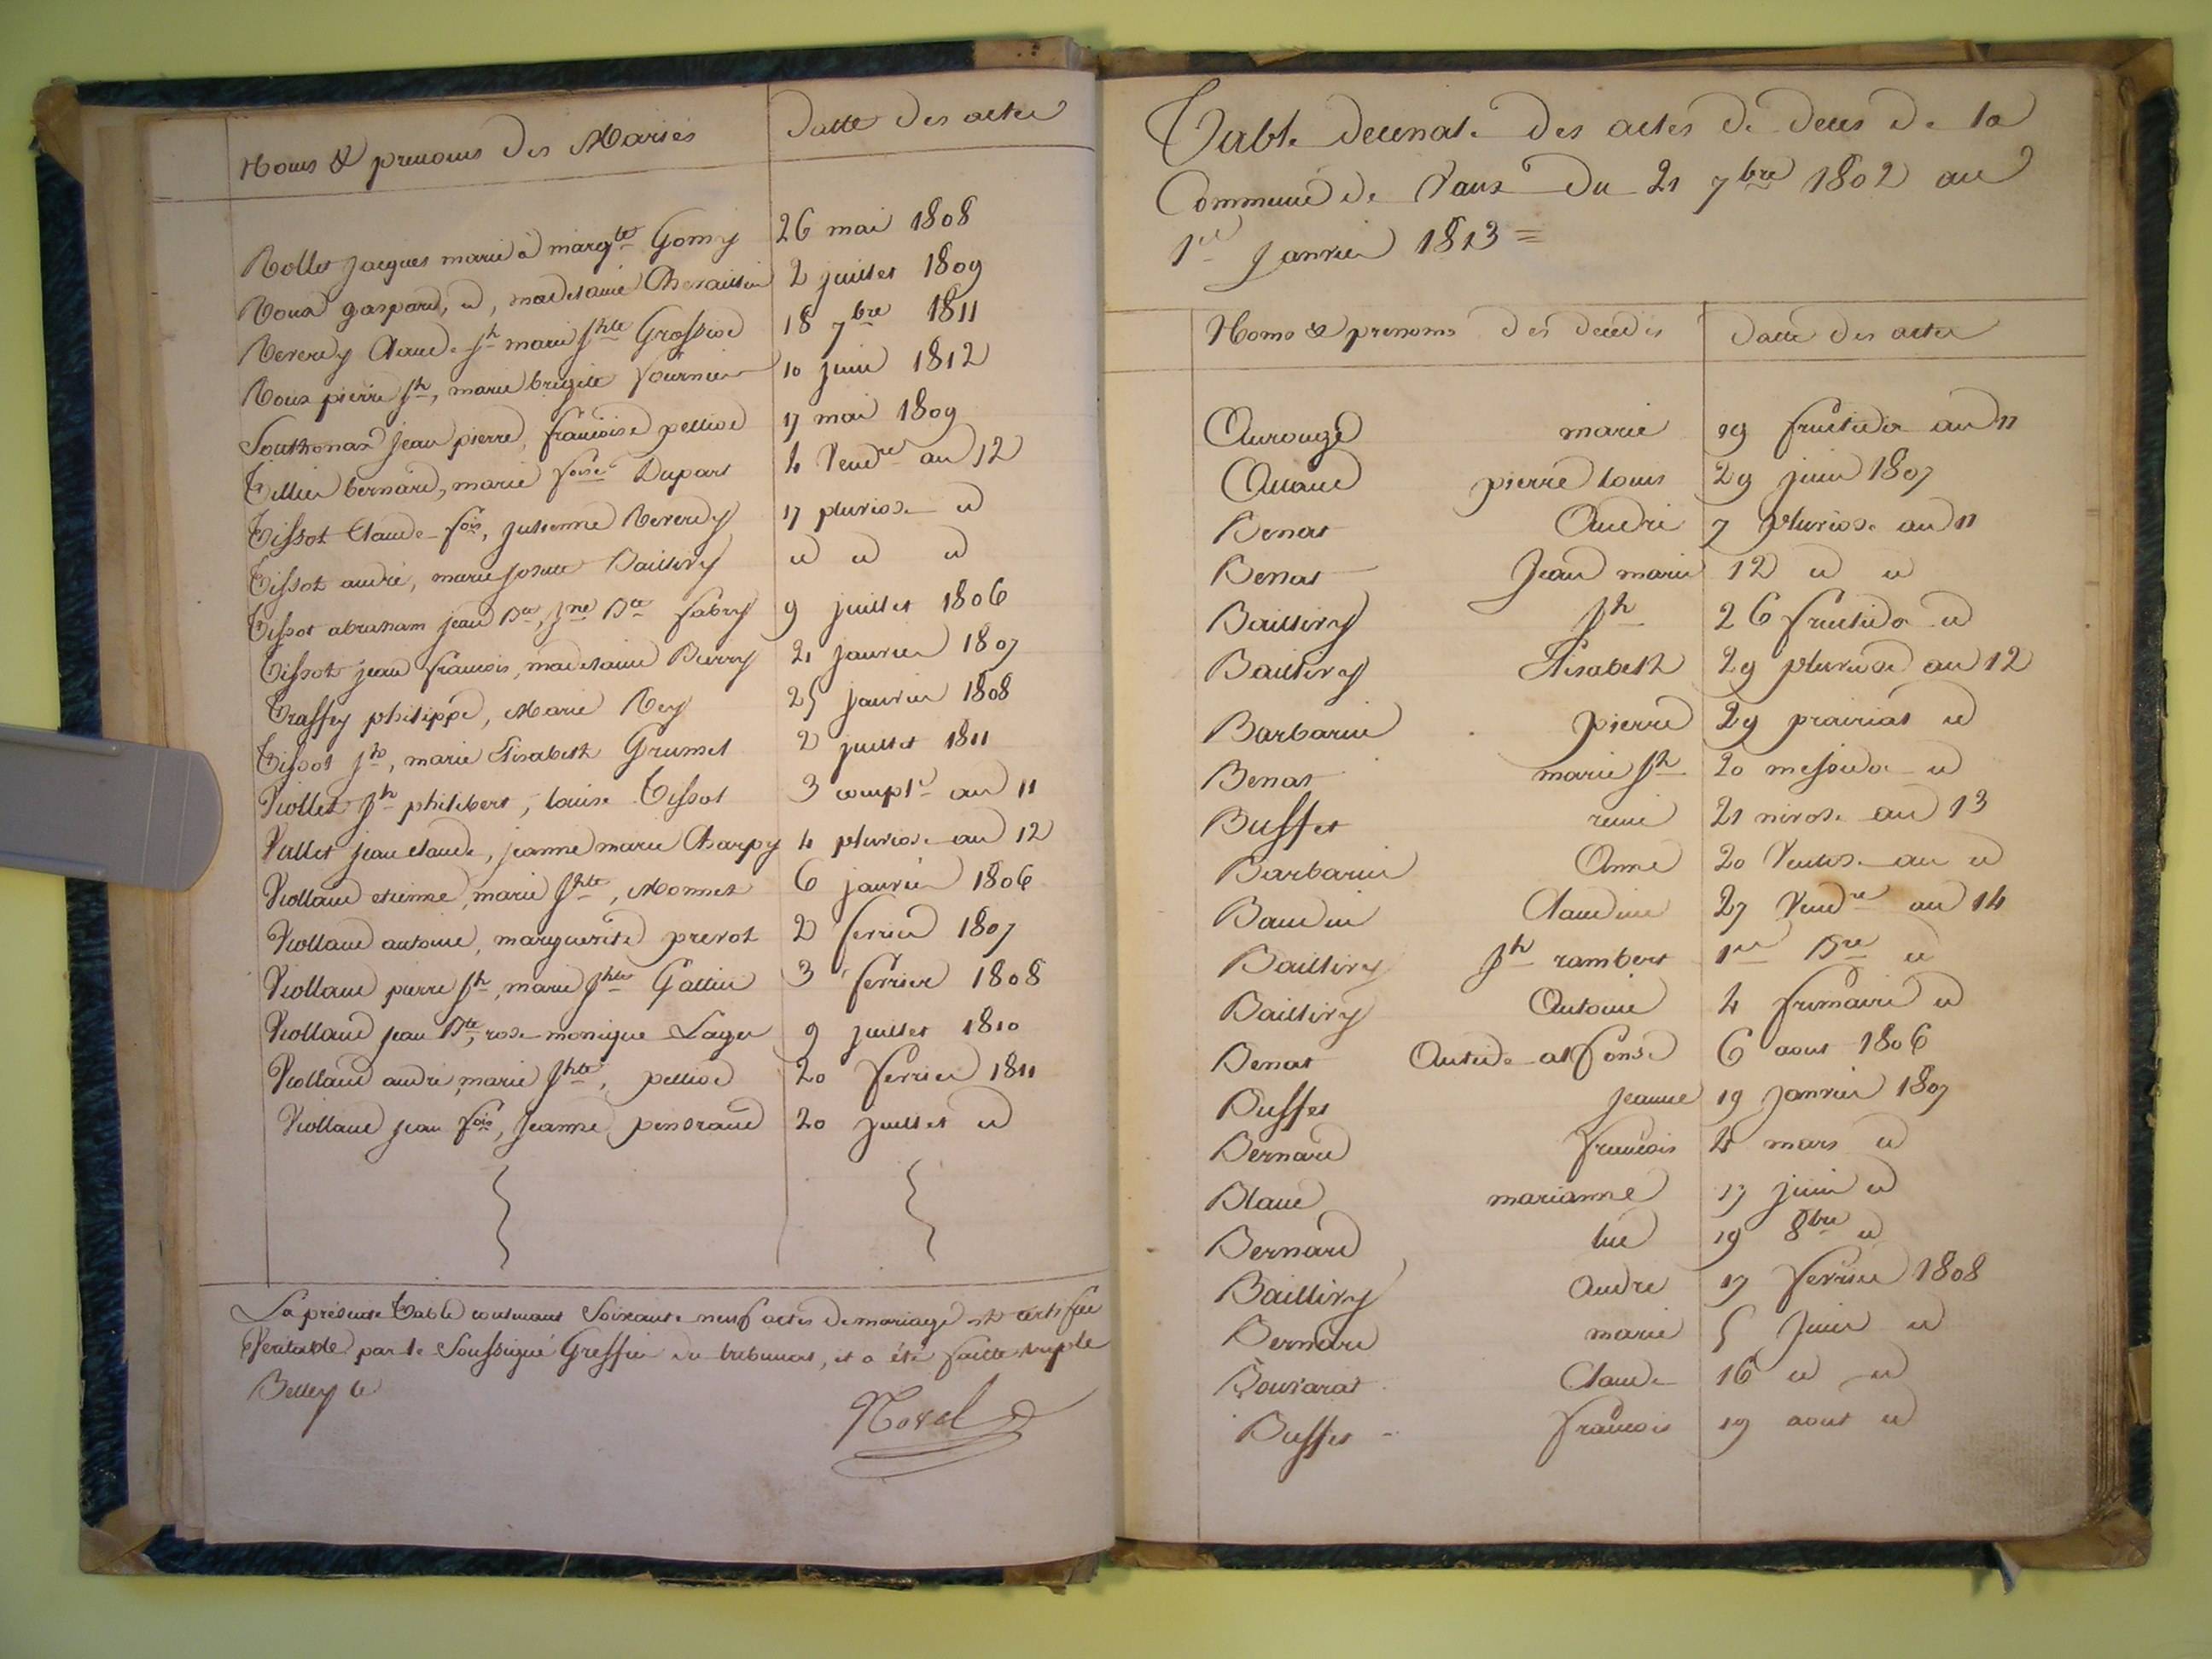 Noms & prenoms des Mariés
Datte des actes
Rollet jacques marié à margte Gomy 26 mai 1808
Roux gaspard, id, madelaine 2 juillet 1809
Reverdy Claude Jh marie Jhte 18 7bre 1811
Roux pierre Jh, marie brigite fournier 10 juin 1812
Southonax jean pierre, francoise pelliod 17 mai 1809
Tillier bernard, marie foise Dupart 4 Vendre an 12
Tissot Claude fois, julienne Reverdy 17 pluviose id
Tissot andré, marie Baillivy id id id
Tissot abraham jean Bte, Jne Bte fabry 9 juillet 1806
Tissot jean francois, madelaine 21 janvier 1807
Traffey philippe, Marie Rey 25 janvier 1808
Tissot Jh, marie Elisabeth Grumet 2 juillet 1811
Viollet Jh philibert, louise Tissot 3 complre an 11
Vallet jean claude, jeanne marie Charpy 4 pluviose an 12
Viollaud etienne, marie Jhte, Monnet 6 janvier 1806
Viollaud antoine, marguerite prevot 2 fevrier 1807
Viollaud pierre Jh, marie Jhte Gallin 3 fevrier 1808
Viollaud jean Bte, rose monique Layer 9 juillet 1810
Viollaud andré, marie Jhte, pelliod 20 fevrier 1811
Viollaud jean fois, Jeanne pendraud 20 juillet id
La présente Table contenant Soixante neuf actes de mariage est certifiée
Veritable par le Soussigné Greffier du tribunal, et a été faitte triple
Belley le
Table decenale des actes de deces de la
Commune de Vaux du 21 7bre 1802 au
1er Janvier 1813 =
Noms & prenoms des decedés Datte des actes
Aurouge marie 19 fructidor an 11
pierre louis 29 juin 1807
Benat André 7 pluviose an 11
Benat Jean marie 12 id id
Baillivy Jh 26 fructidor id
Baillivy Elisabeth 29 pluviose an 12
Barbarin pierre 29 prairial id
Benat marie Jh 20 messidor id
Buffet 21 nivose an 13
Barbarin Anne 20 Ventose an id
Baudin Claudine 27 Vendre an 14
Baillivy Jh rambert 1er Bre id
Baillivy Antoine 4 frimaire id
Benat Antide alfonse 6 aout 1806
Buffet Jeanne 19 Janvier 1807
Bernard francois 4 mars id
Blanc marianne 17 juin id
Bernard luc 19 8bre id
Baillivy Andre 17 fevrier 1808
Bernard marie 5 Juin id
Bouvarat Claude 16 id id
Buffet francois 19 aout id